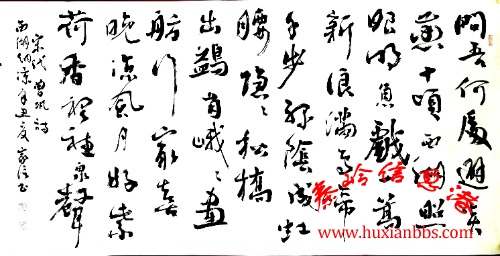 問吾何處避炎
蒸十頃西湖照
眼明魚戲一篙
新浪滿鸟啼
千步綠陰成虹
腰隱々松橋
出鷁首峨々畫
舫行寂喜
晚凉風月好紫
荷香裡聽泉聲
宋代曾巩詩
西湖纳凉辛丑夏家信书
秦岭信息港
www.huxianbbs.com